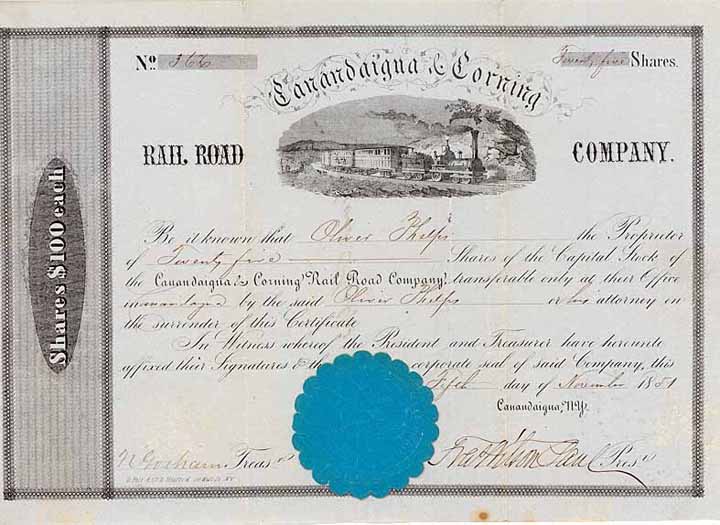 No. 362 Twenty five Shares.
Canandaigua & Corning
RAIL ROAD COMPANY.
Shares $100 each
Be it known that Oliver Phelps the Proprietor
of Twenty five Shares of the Capital Stock of
the Canandaigua & Corning Rail Road Company, transferable only at their Office
in by the said Oliver Phelps or his attorney on
the surrender of this Certificate
In Witness whereof the President and Treasurer have hereunto
affixed their Signatures & the corporate seal of said Company, this
Fifth day of November 1851
Canandaigua, N.Y.
N Gorham Treasr. Pres.t